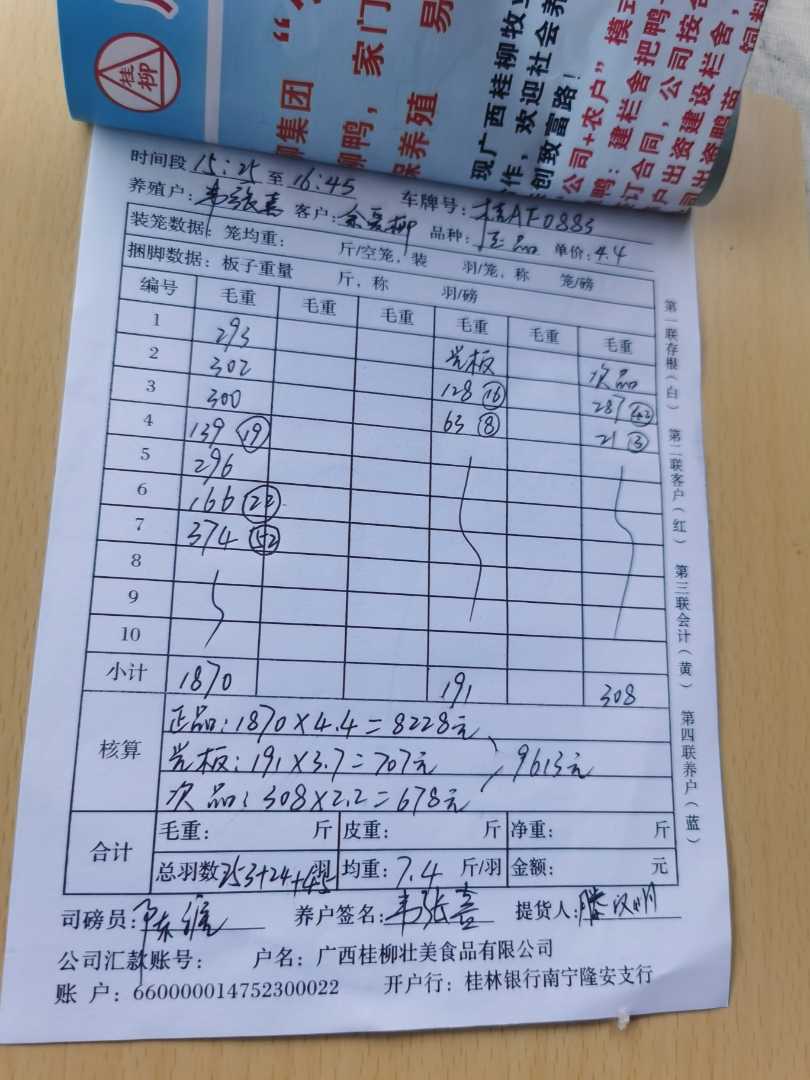 桂柳
集团
柳鸭，家门
保养殖 易
现广西桂柳牧业
作，欢迎社会养
创致富路！
公司+农户”模式
鸭：建栏舍把鸭
订合同，公司按合
户出资建设栏舍，
司出资鸭苗、饲料
时间段 15:25 至 16:45
养殖户: 韦张喜 客户: 车牌号: 桂AF0883
品种: 正品 单价: 4.4
装笼数据: 笼均重: 斤/空笼, 装 羽/笼, 称 笼/磅
捆脚数据: 板子重量 斤, 称 羽/磅
编号 毛重 毛重 毛重 毛重 毛重 毛重
1 293
2 302 光板 次品
3 300 128 16 287 42
4 139 19 63 8 21 3
5 296
6 166 22
7 374 52
8
9
10
小计 1870 191 308
核算 正品: 1870×4.4=8228元
光板: 191×3.7=707元 9613元
次品: 308×2.2=678元
合计 毛重: 斤 皮重: 斤 净重: 斤
总羽数 253+24+45 羽 均重: 7.4 斤/羽 金额: 元
司磅员: 养户签名: 韦张喜 提货人: 滕汉明
公司汇款账号: 户名: 广西桂柳壮美食品有限公司
账 户: 660000014752300022 开户行: 桂林银行南宁隆安支行
第一联存根(白) 第二联客户(红) 第三联会计(黄) 第四联养户(蓝)